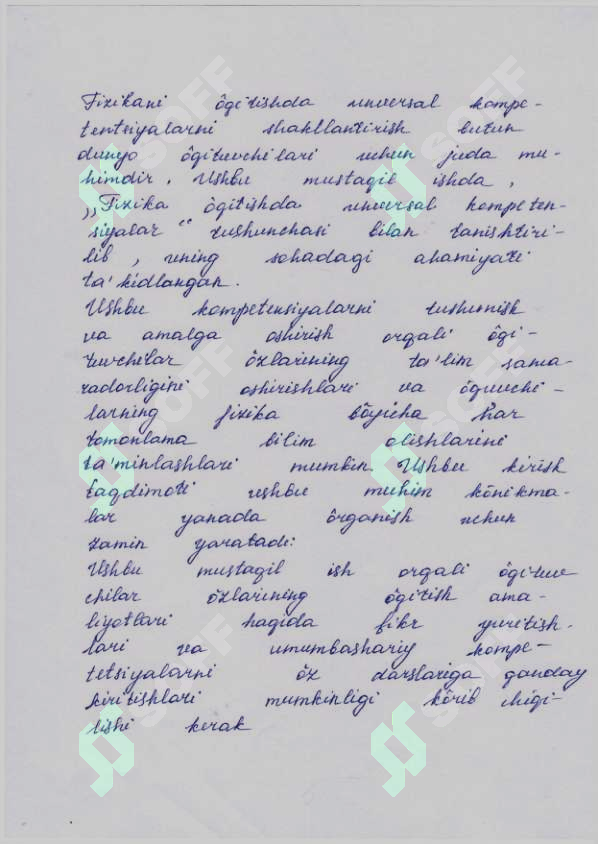 Fizikani ôqitishda universal kompe-
tentsiyalarni shakllantirish butun
dunyo ôqituvchilari uchun juda mu-
himdir. Ushbu mustaqil ishda,
„Fizika ôqitishda universal kompeten-
siyalar“ tushunchasi bilan tanishtiri-
lib, uning sohadagi ahamiyati
ta'kidlangan.
Ushbu kompetensiyalarni tushunish
va amalga oshirish orqali ôqi-
tuvchilar ôzlarining ta'lim sama-
radorligini oshirishlari va ôquvchi-
larning fizika bôyicha har
tomonlama bilim olishlarini
ta'minlashlari mumkin. Ushbu kirish
taqdimoti ushbu muhim kônikma-
lar yanada ôrganish uchun
zamin yaratadi:
Ushbu mustaqil ish orqali ôqituv
chilar ôzlarining ôqitish ama-
liyotlari haqida fikr yuritish-
lari va umumbashariy kompe-
tetsiyalarni ôz darslariga qanday
kiritishlari mumkinligi kôrib chiqi-
lishi kerak
SOFF
SOFF
SOFF
SOFF
SOFF
SOFF